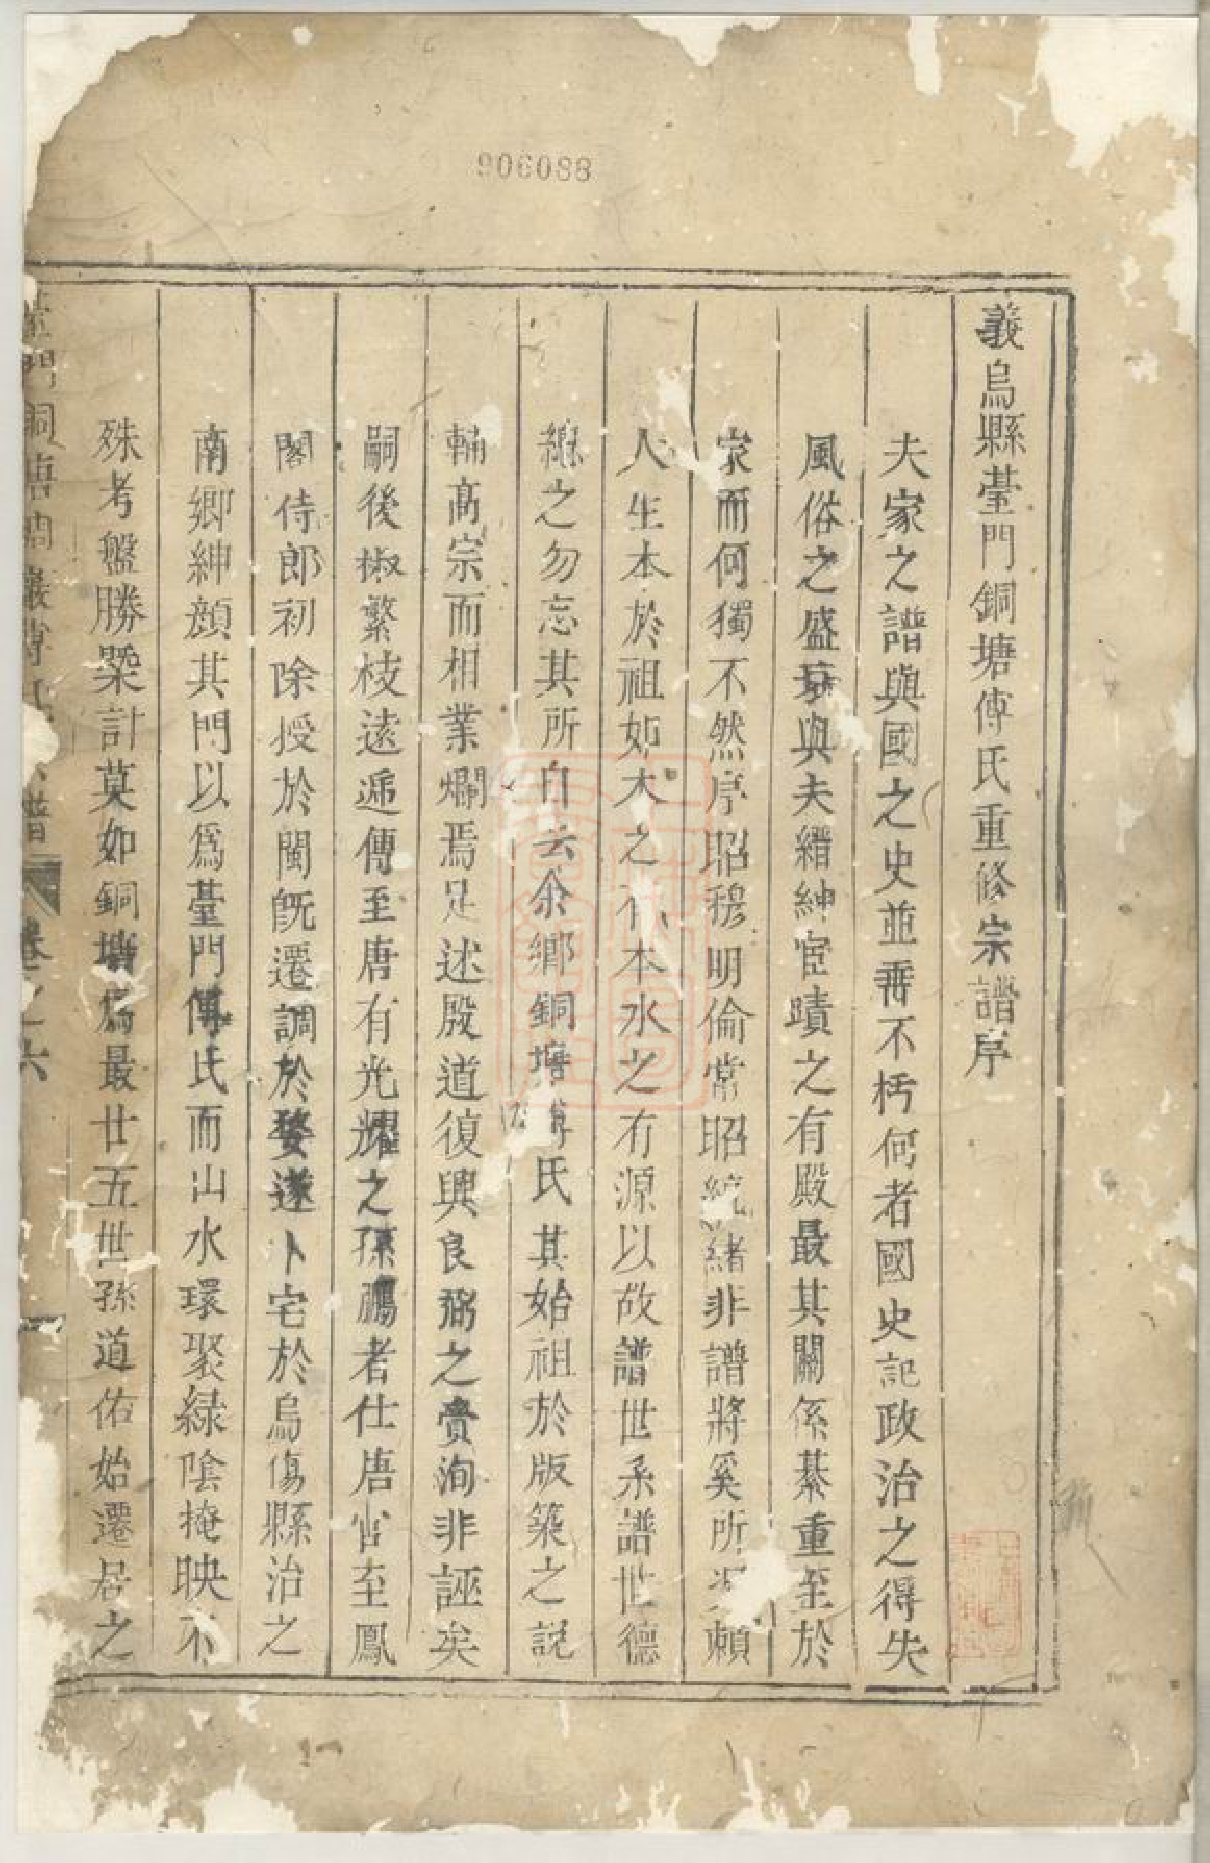 906088
義烏縣臺門銅塘傅氏重修宗譜序
夫家之譜與國之史並垂不朽何者國史記政治之得失
風俗之盛衰與夫縉紳宦蹟之有殿最其關係綦重至於
家而何獨不然序昭穆明倫常昭統緒非譜將奚所賴
人生本於祖如木之有本水之有源以故譜世系譜世德
繼之勿忘其所自云余鄉銅塘傅氏其始祖於版築之説
輔高宗而相業爛焉足述殷道復興良弼之賚洵非誣矣
嗣後椒繁枝遠遞傳至唐有光耀之孫鵬者仕唐官至鳳
閣侍郎初除授於閩旣遷調於婺遂卜宅於烏傷縣治之
南鄉紳顔其門以爲臺門傅氏而山水環聚綠陰掩映不
殊考盤勝槩計莫如銅塘爲最廿五世孫道佑始遷居之
門銅塘 巖傅 譜 卷之六